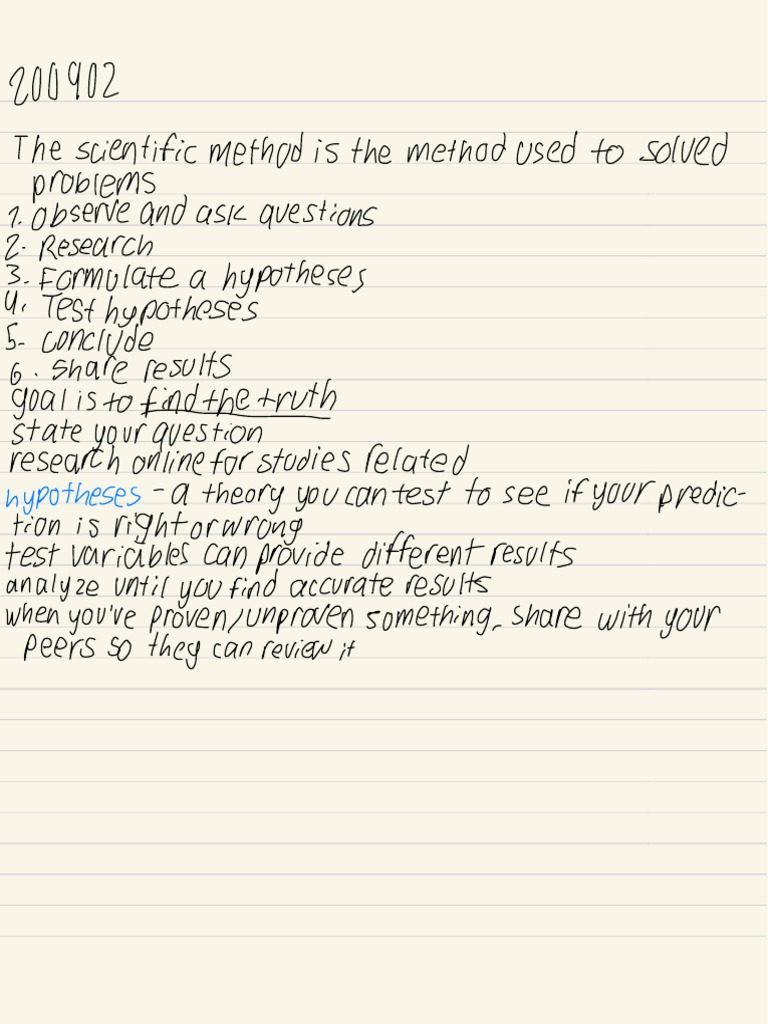 200902
The scientific method is the method used to solved
problems
1. Observe and ask questions
2. Research
3. Formulate a hypotheses
4. Test hypotheses
5. conclude
6. share results
goal is to find the truth
state your question
research online for studies related
hypotheses - a theory you can test to see if your predic-
tion is right or wrong
test variables can provide different results
analyze until you find accurate results
when you've proven/unproven something, share with your
peers so they can review it